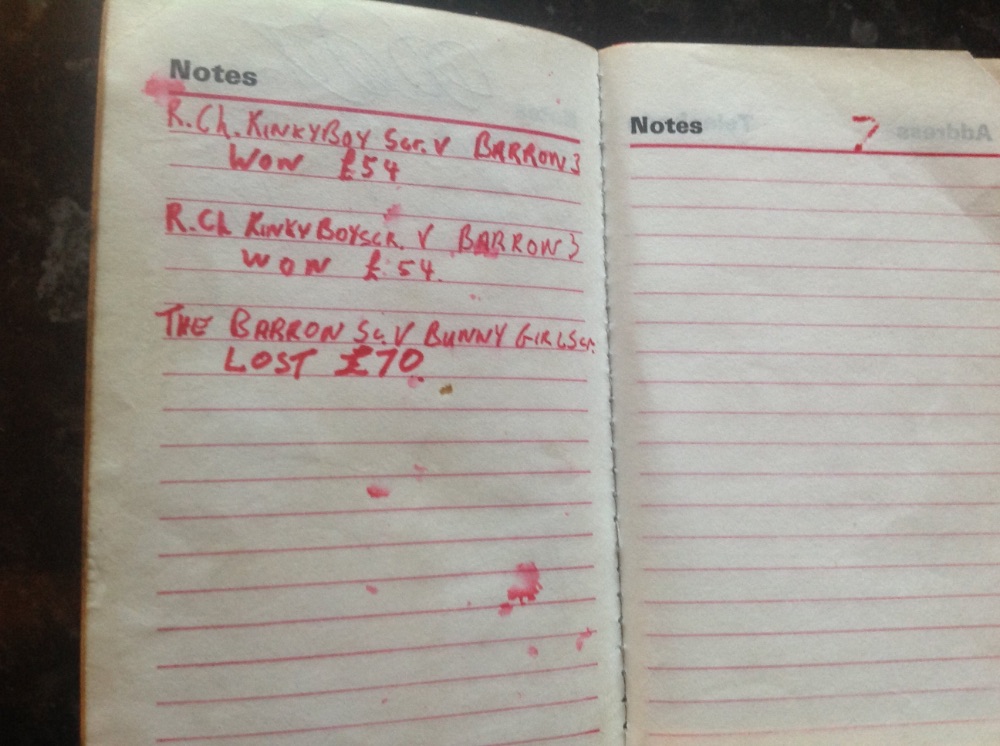 Notes
R.Ch. KINKYBOY Scr. V BARRON 3
WON £54
R.Ch KINKY BOY SCR. V BARRON 3
WON £54.
THE BARRON Sc. V BUNNY GIRL Scr.
LOST £70.
Notes
7
Address